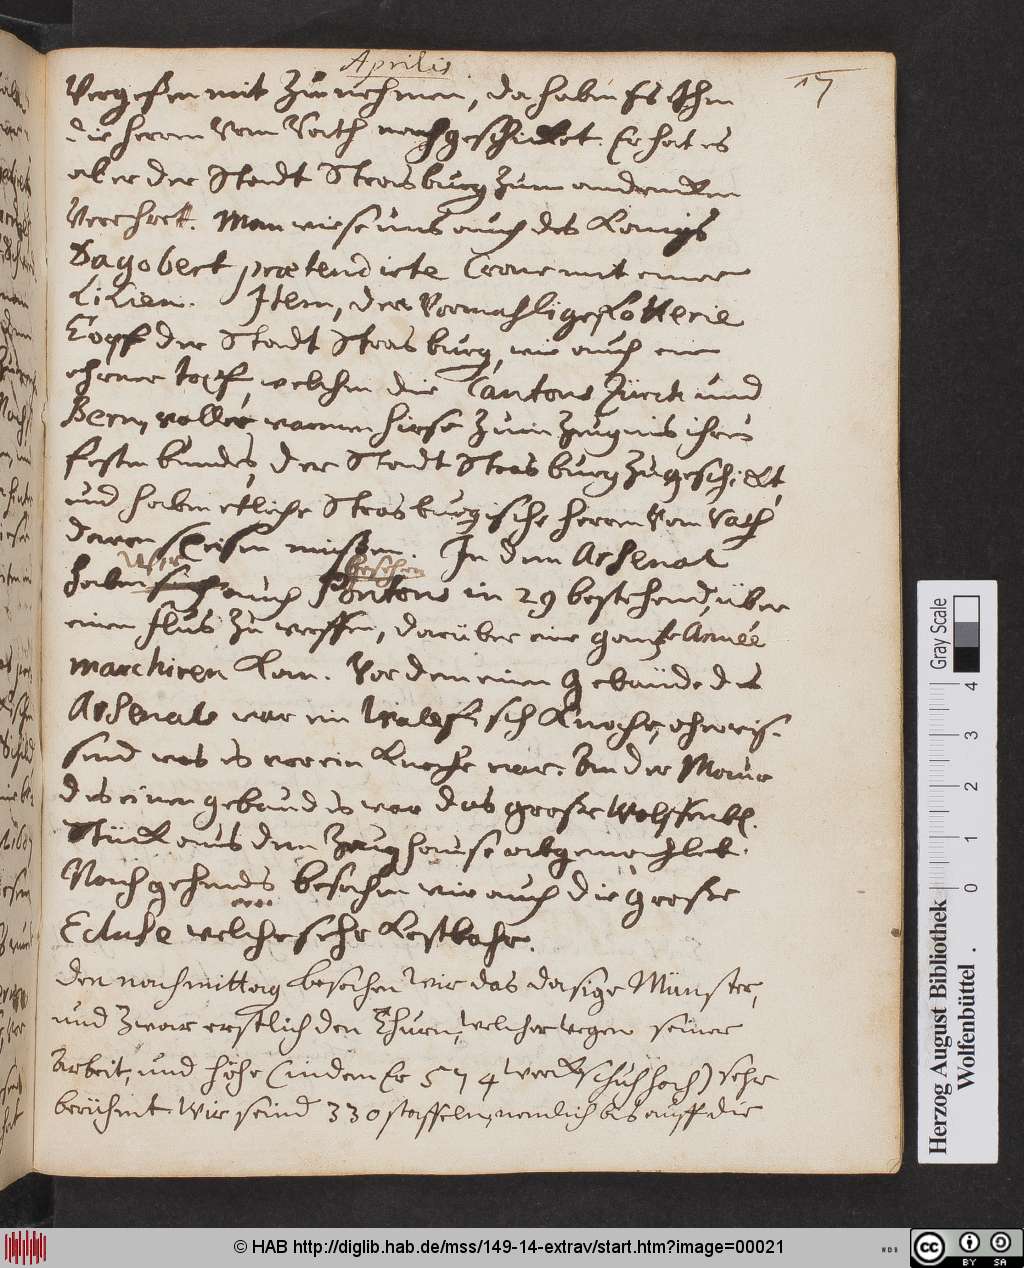 Aprilis.
17
Vergessen mit Zu nehmen, da haben Es Ihm
die herren Vom Rath nachgeschicket. Er hat es
aber der Stadt Strasburg zum andencken
Verehrett. Man wiese uns auch des Königs
Dagobert praetendirte Crone mit einer
Lilien. Item, der Vormahlige Lotterie
Topf der Stadt Strasburg, wie auch ein
ehrner topf, welchen die Cantons Zürch und
Bern, voller warmen hirse Zum Zeugnis ihres
festen bundes, der Stadt Strasburg zugeschickt,
und haben etliche Strasburgische herren Vom Rath
davon speisen müssen. In dem Arsenal
Wir besehen
haben sich auch Pontons in 29 bestehend, über
einen flus zu werffen, darüber eine gantze Armée
marchiren kan. Vor dem einen Gebäude des
Arsenals war ein Wallfisch Knoche, ohnwis-
send was es vor ein Knoche war. An der Maur
des einen gebäudes war das grosse Wolffenbl.
Stück aus dem Zeughause abgemahlet.
Nachgehends besahen wir auch die grosse
Ecluse welche sehr kostbahr.
den nachmittag besahen Wir das dasige Münster,
und Zwar erstlich den Thurn, welcher wegen seiner
Arbeit, und höhe (indem Er 574 werckschuh hoch) sehr
berühmt. Wir seind 330 staffeln, nemlich bis auff die
Gray Scale
0 1 2 3 4
Herzog August Bibliothek
Wolfenbüttel
© HAB http://diglib.hab.de/mss/149-14-extrav/start.htm?image=00021
cc
BY SA